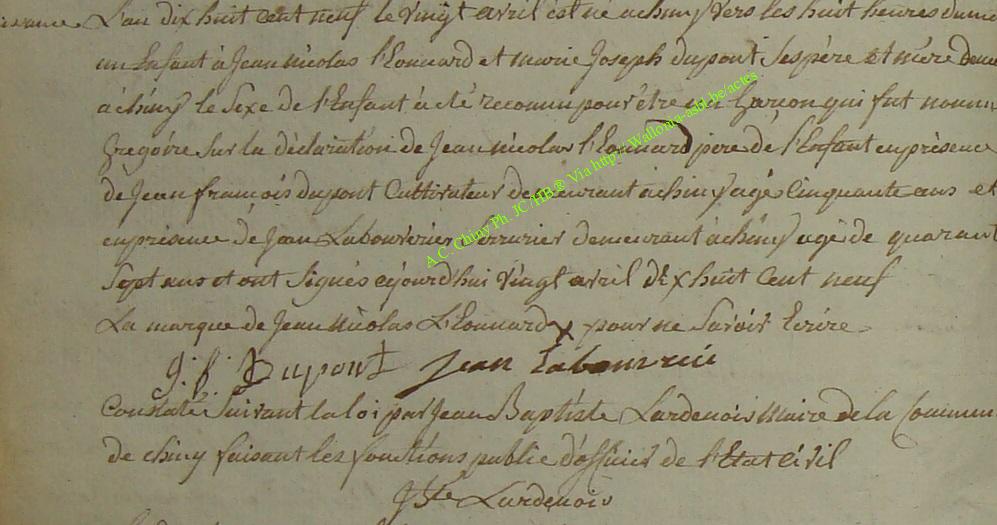 L'an dix huit cent neuf le vingt avril est né a chiny vers les huit heures du
un Enfant à Jean Nicolas l'Eonnard et marie Joseph dupont Ses père et mère
à chiny le Sexe de l'Enfant à eté reconnu pour être un Garcon qui fut nomm
Gregoire Sur la déclaration de Jean nicolas l'Eonnard père de l'Enfant en présence
de Jean francois dupont Cultivateur demeurant à chiny agé Cinquante ans et
en présence de Jean Serrurier demeurant à chiny agé de quarant
Sept ans et ont Signés cejourd'hui vingt avril dix huit Cent neuf
La marque de Jean Nicolas L'Eonnard x pour ne Savoir Ecrire
J. f. Dupont Jean
Constaté Suivant la loi par Jean Baptiste Lardenois Maire de la Commun
de chiny faisant les fonctions public d'officier de l'Etat Civil
Lardenois
A.C. Chiny Ph. JC /HB ® Via http://Wallonia-asbl.be/actes